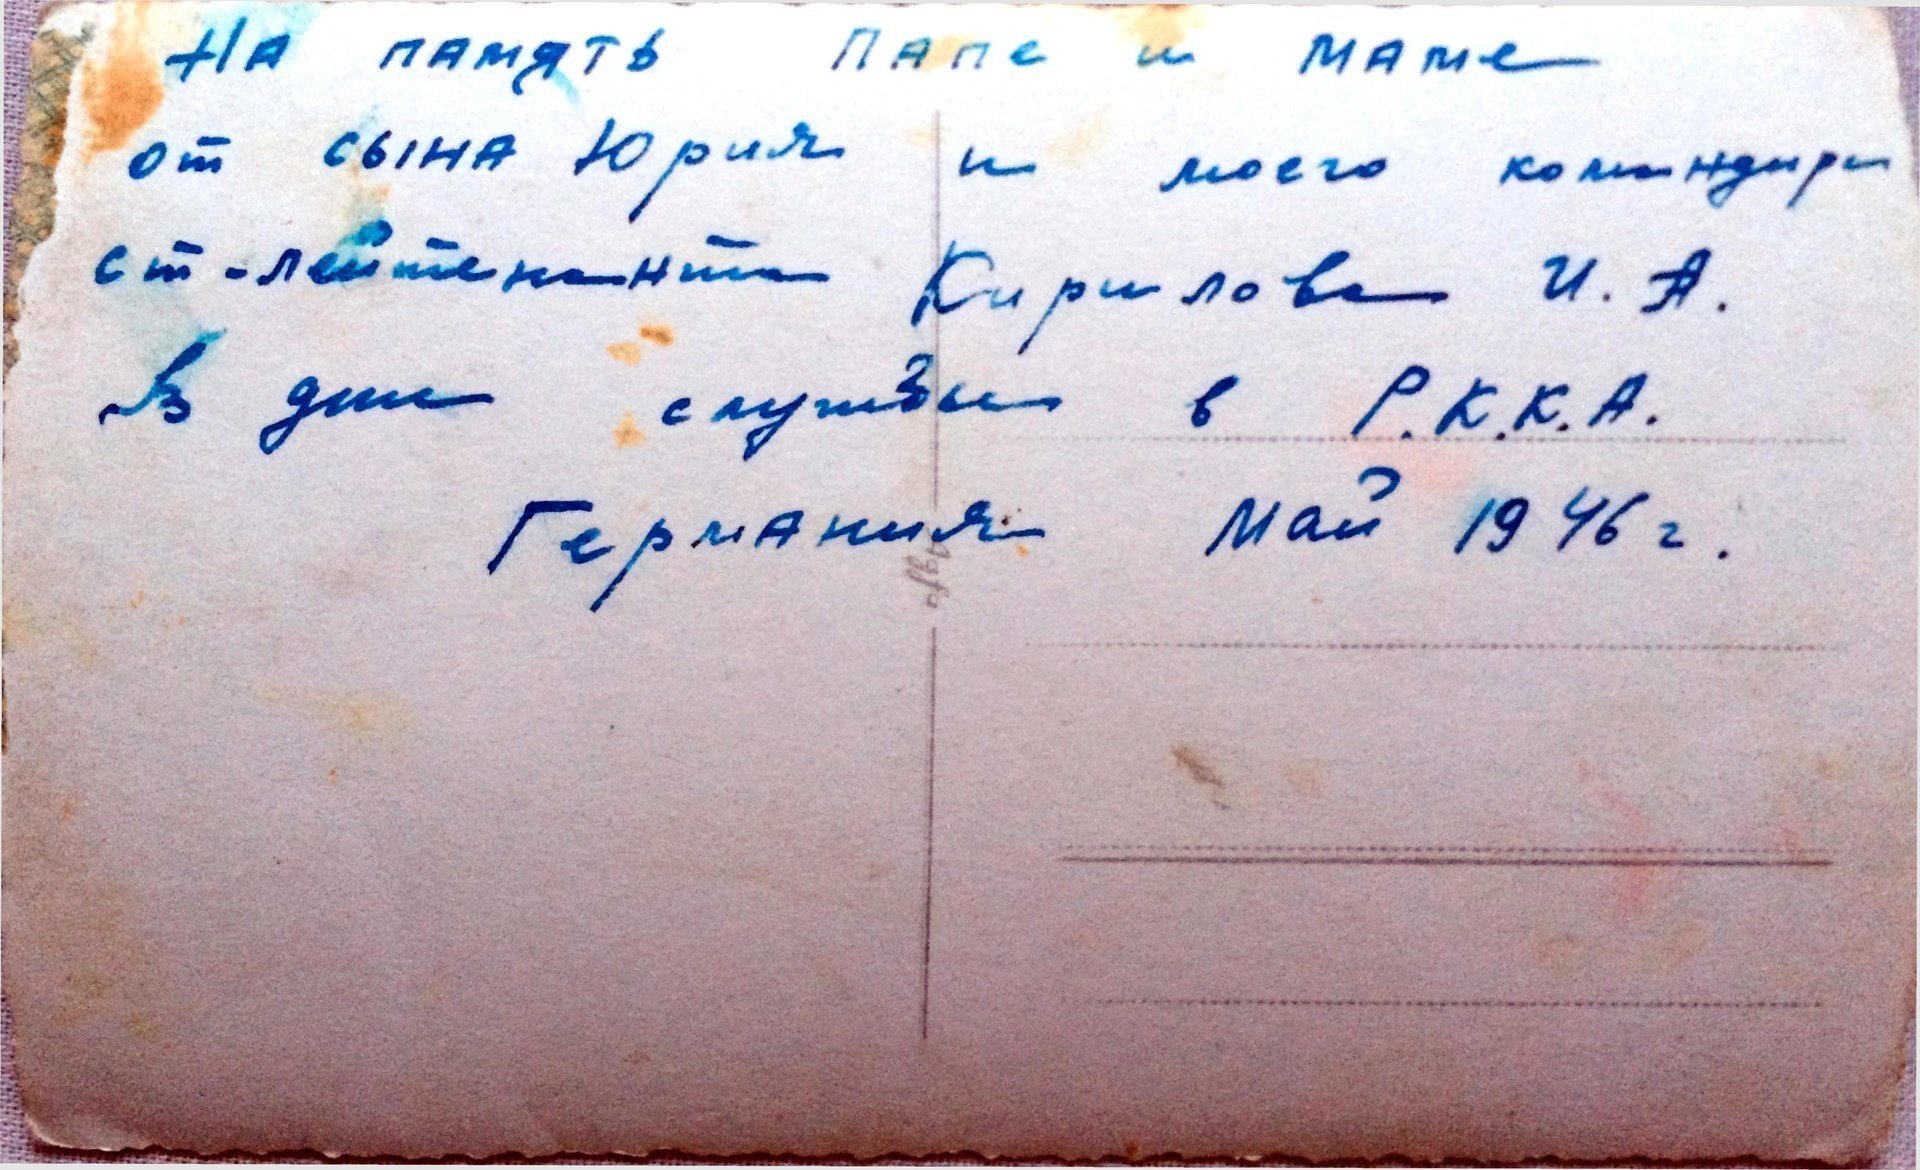 На память Папе и маме
от сына Юрия и моего командира
ст-лейтенанта Кирилова И. А.
В дни службы в Р.К.К.А.
Германия май 1946 г.
Agfa